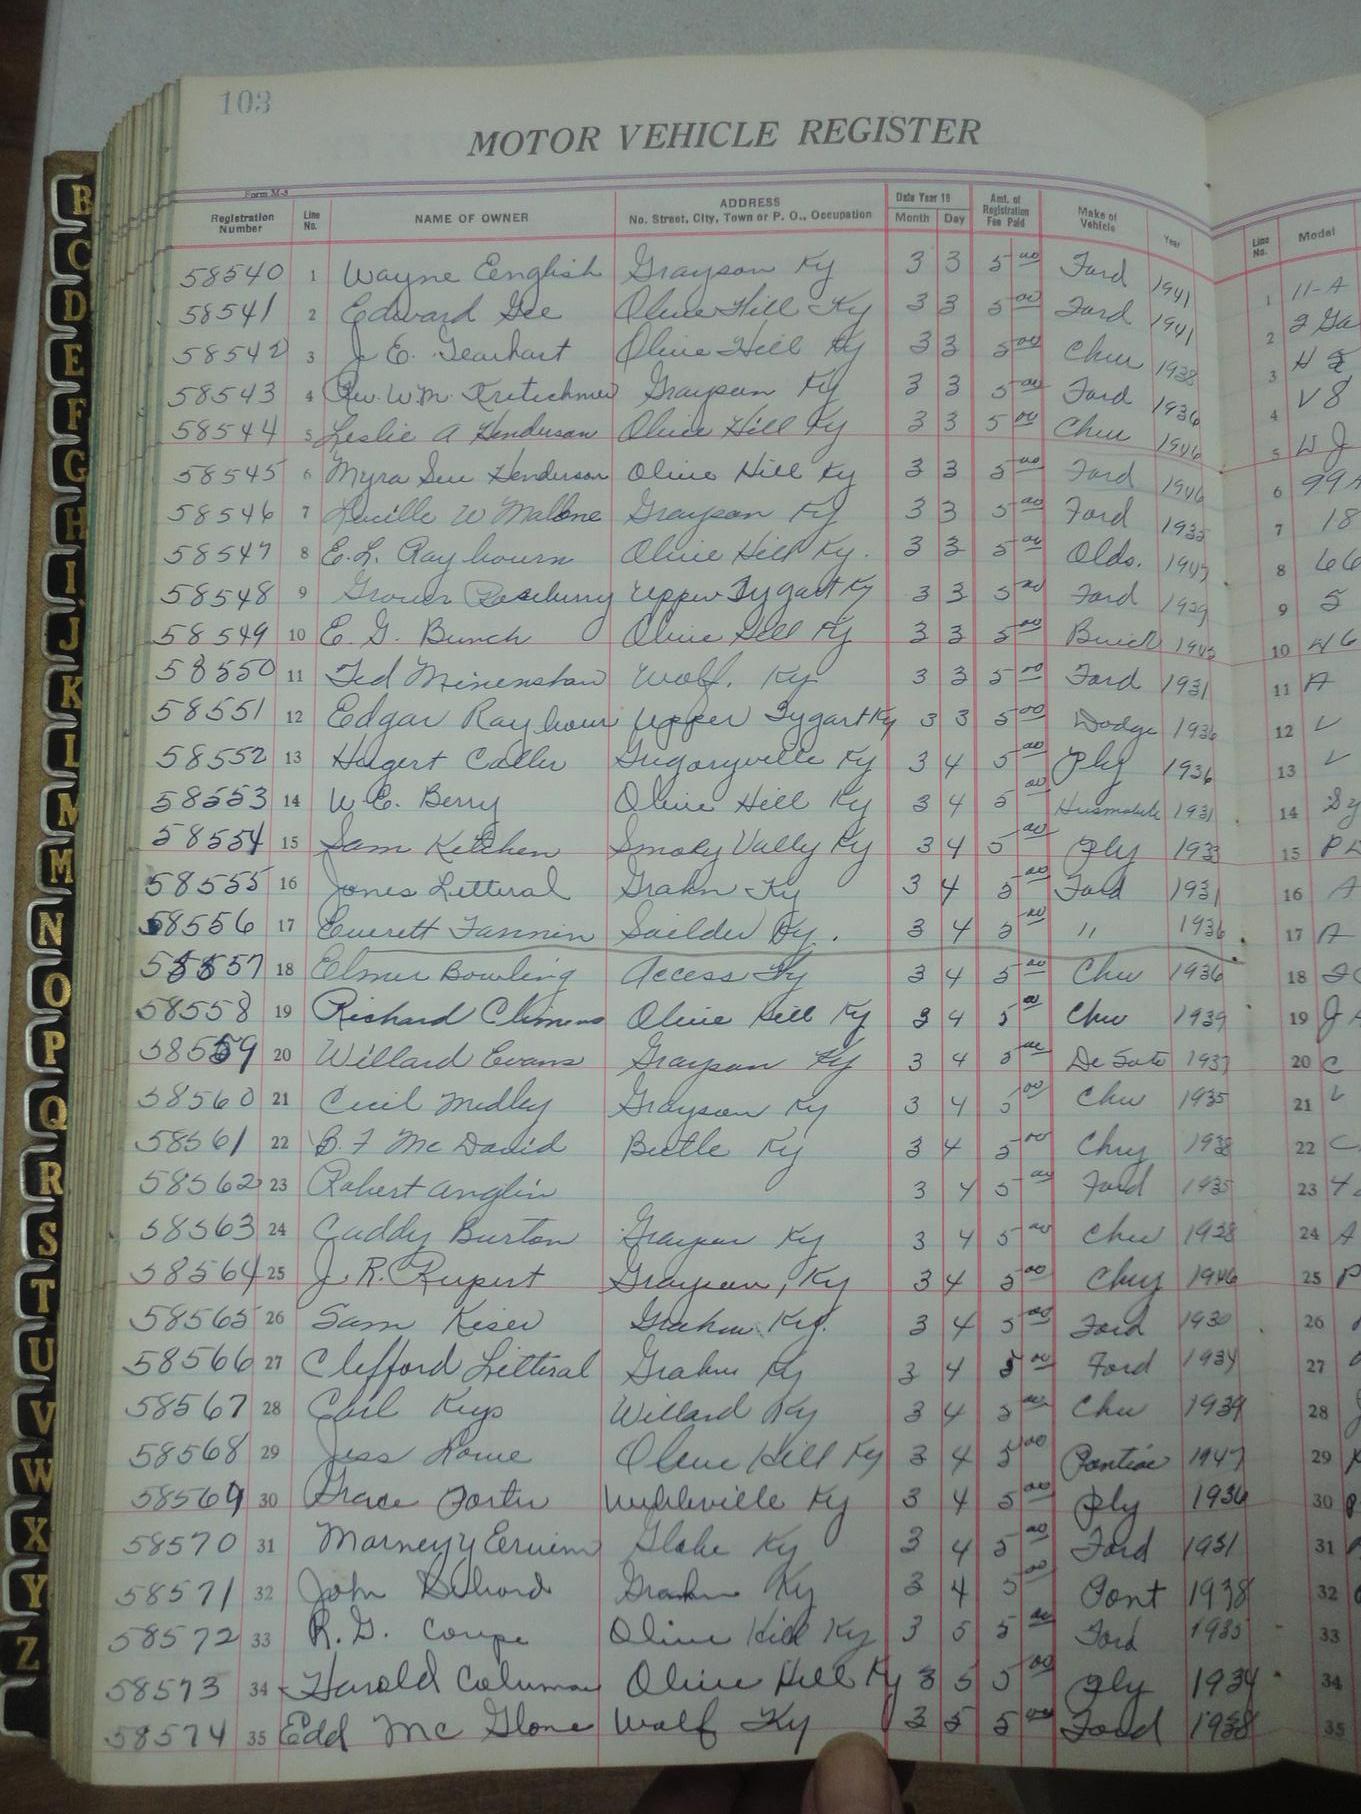 103
MOTOR VEHICLE REGISTER
Form M-8
Registration Number Line No. NAME OF OWNER ADDRESS No. Street, City, Town or P. O., Occupation Date Year 19 Month Day Amt. of Registration Fee Paid Make of Vehicle Year Line No. Model
58540 1 Wayne Eenglish Grayson Ky 3 3 5 00 Ford 1941 1 11-A
58541 2 Edward Gee Olive Hill Ky 3 3 5 00 Ford 1941 2 2 Ga
58542 3 J. E. Gearhart Olive Hill Ky 3 3 5 00 Chev 1938 3 H
58543 4 Rev. W.M. Kretschmer Grayson Ky 3 3 5 00 Ford 1936 4 V8
58544 5 Leslie A Henderson Olive Hill Ky 3 3 5 00 Chev 1946 5 W J
58545 6 Myra Sue Henderson Olive Hill Ky 3 3 5 00 Ford 1946 6 99A
58546 7 Lucille W Malone Grayson Ky 3 3 5 00 Ford 1935 7 18
58547 8 E. L. Raybourn Olive Hill Ky. 3 3 5 00 Olds. 1947 8 66
58548 9 Grover Roseberry Upper Tygart Ky 3 3 5 00 Ford 1929 9 5
58549 10 E. G. Bunch Olive Hill Ky 3 3 5 00 Buick 10 46
58550 11 Ted Minenshaw Wolf. Ky 3 3 5 00 Ford 1931 11 A
58551 12 Edgar Raybourn Upper Tygart Ky 3 3 5 00 Dodge 1936 12
58552 13 Hugert Caller Gregoryville Ky 3 4 5 00 Ply 1936 13
58553 14 W. E. Berry Olive Hill Ky 3 4 5 00 1931 14
58554 15 Sam Kitchen Smoky Vally Ky 3 4 5 00 Ply 1933 15
58555 16 Jones Litteral Grahn Ky 3 4 5 00 Ford 1931 16 A
58556 17 Everett Fannin Soilder Ky. 3 4 5 00 " 1936 17 A
58557 18 Elmer Bowling Access Ky 3 4 5 00 Chev 1936 18
58558 19 Richard Clemens Olive Hill Ky 3 4 5 00 Chev 1939 19
58559 20 Willard Evans Grayson Ky 3 4 5 00 De Soto 1937 20 C
58560 21 Cecil Medley Grayson Ky 3 4 5 00 Chev 1935 21
58561 22 B. F McDavid Beetle Ky 3 4 5 00 Chry 1938 22 C
58562 23 Robert Anglin 3 4 5 00 Ford 1935 23 4
58563 24 Caddy Burton Grayson Ky 3 4 5 00 Chev 1938 24 A
58564 25 J. R. Rupert Grayson, Ky 3 4 5 00 Chry 1946 25 P
58565 26 Sam Kiser Grahn Ky. 3 4 5 00 Ford 1930 26
58566 27 Clefford Litteral Grahn Ky 3 4 5 00 Ford 1934 27
58567 28 Carl Keys Willard Ky 3 4 5 00 Chev 1939 28
58568 29 Jess Lowe Olive Hill Ky 3 4 5 00 Pontiac 1947 29
58569 30 Grace Porter Webbville Ky 3 4 5 00 Ply 1936 30
58570 31 Globe Ky 3 4 5 00 Ford 1931 31
58571 32 John Dehord Grahn Ky 3 4 5 00 Pont 1938 32
58572 33 R. G. Coupe Olive Hill Ky 3 5 5 00 Ford 1935 33
58573 34 Harold Olive Hill Ky 3 5 5 00 Ply 1934 34
58574 35 Edd Mc Glone Wolf Ky 3 5 5 00 Ford 1938 35
B
C
D
E
F
G
H
I
J
K
L
M
M
N
O
P
Q
R
S
T
U
V
W
X
Y
Z